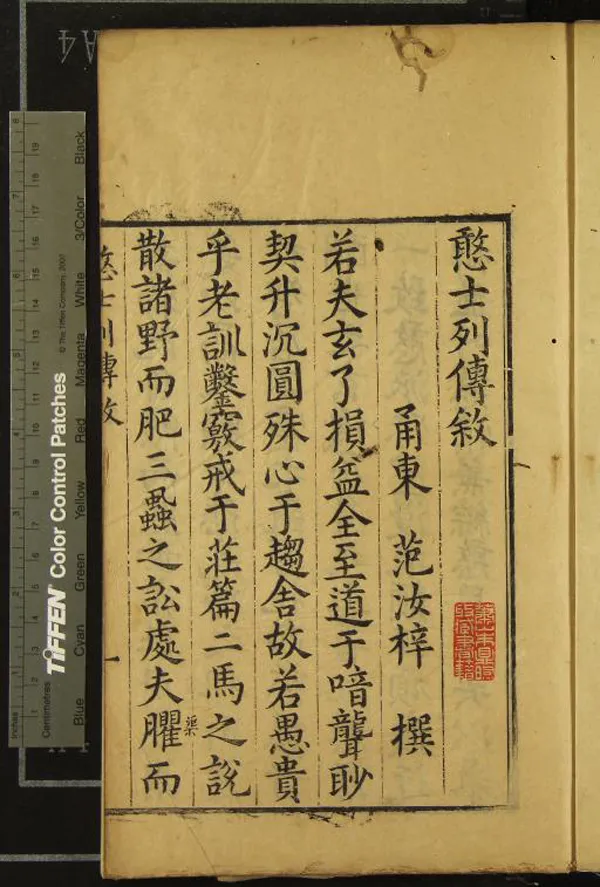 憨士列傳敘
甬東 范汝梓 撰
若夫玄了損益全至道于喑聾眇
契升沉圓殊心于趨舍故若愚貴
乎老訓鑿竅戒于莊篇二馬之說
散諸野而肥三蝨之訟處夫臞而
渠
憨士列傳敘
一
蕭山朱鼎煦
收藏書籍
TIFFEN Color Control Patches
© The Tiffen Company, 2007
Blue Cyan Green Yellow Red Magenta White 3/Color Black
Inches 1 2 3 4 5 6 7 8
Centimetres 1 2 3 4 5 6 7 8 9 10 11 12 13 14 15 16 17 18 19
A4